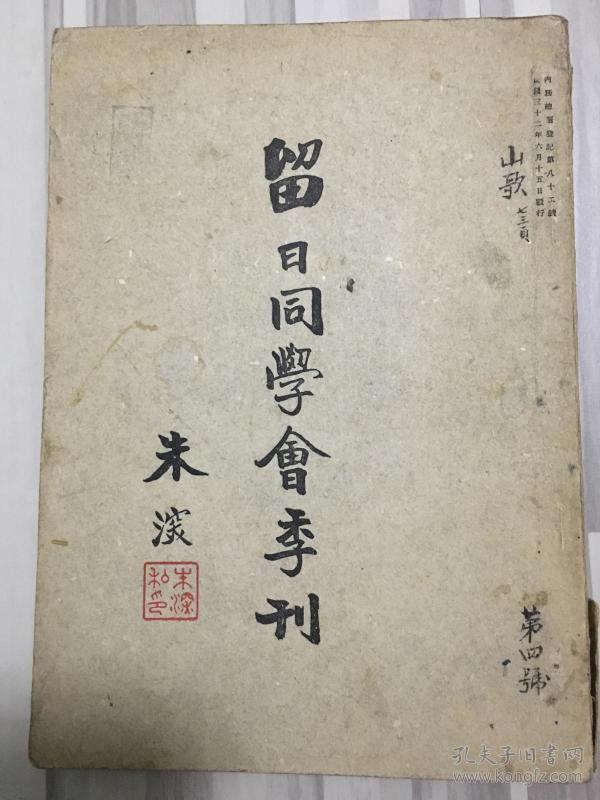 內務總署登記第八十二號
民國三十二年六月十五日發行
山歌 七三頁
第四號
留日同學會季刊
朱深
朱深
私印
孔夫子旧书网
www.kongfz.com